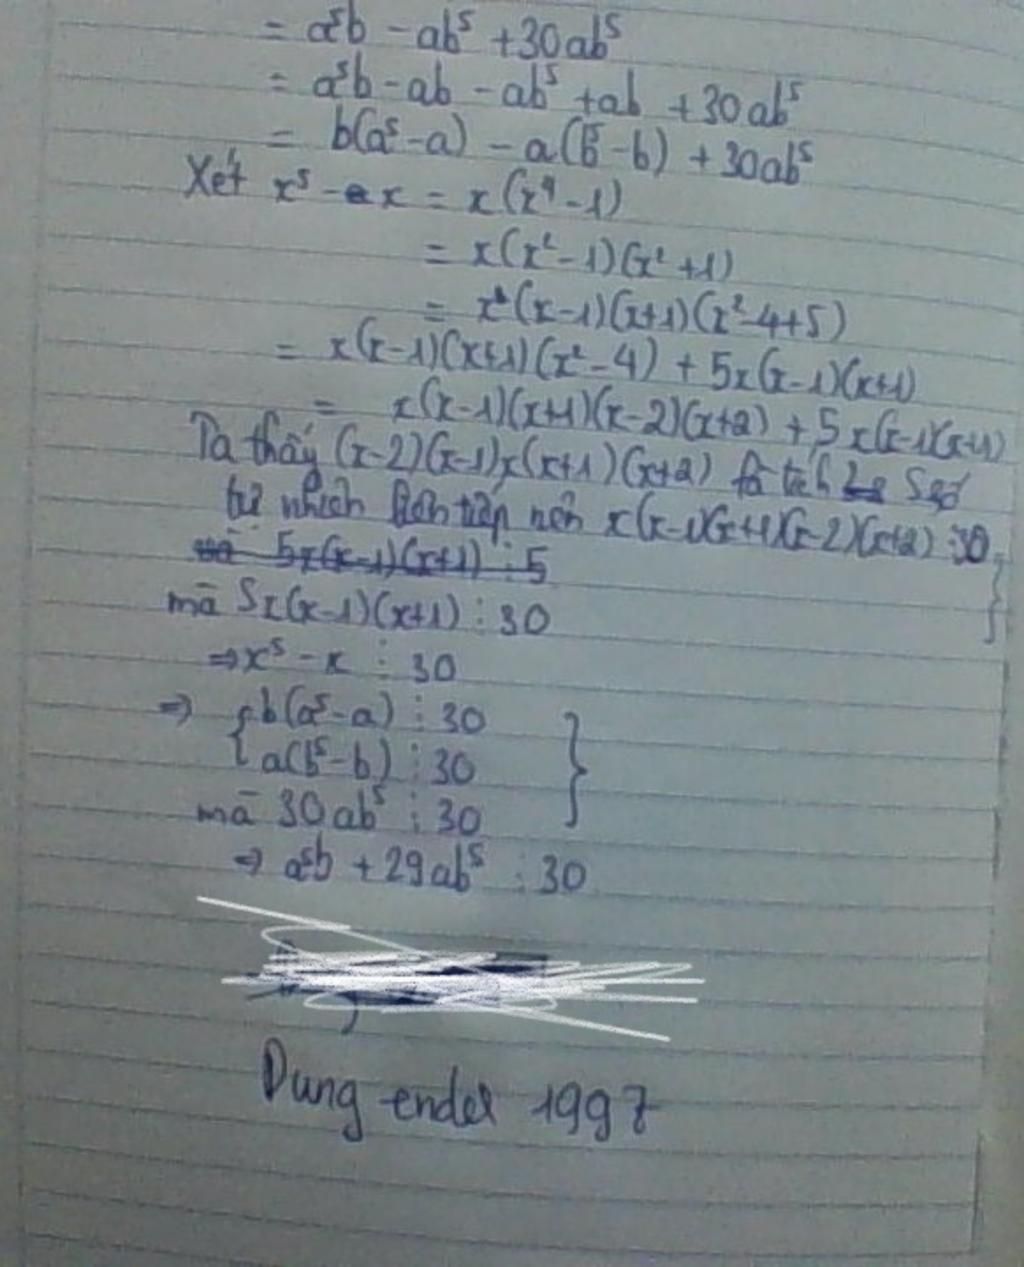 = a⁵b - ab⁵ + 30ab⁵
= a⁵b - ab - ab⁵ + ab + 30ab⁵
= b(a⁵ - a) - a(b⁵ - b) + 30ab⁵
Xét x⁵ - x = x(x⁴ - 1)
= x(x² - 1)(x² + 1)
= x(x - 1)(x + 1)(x² - 4 + 5)
= x(x - 1)(x + 1)(x² - 4) + 5x(x - 1)(x + 1)
= x(x - 1)(x + 1)(x - 2)(x + 2) + 5x(x - 1)(x + 1)
Ta thấy (x - 2)(x - 1)x(x + 1)(x + 2) là tích 5 số
tự nhiên liên tiếp nên x(x - 1)(x + 1)(x - 2)(x + 2) ⋮ 30
5x(x - 1)(x + 1) ⋮ 5
mà 5x(x - 1)(x + 1) ⋮ 30
⇒ x⁵ - x ⋮ 30
⇒ { b(a⁵ - a) ⋮ 30
a(b⁵ - b) ⋮ 30 }
mà 30ab⁵ ⋮ 30
⇒ a⁵b + 29ab⁵ ⋮ 30
Dung endel 1997